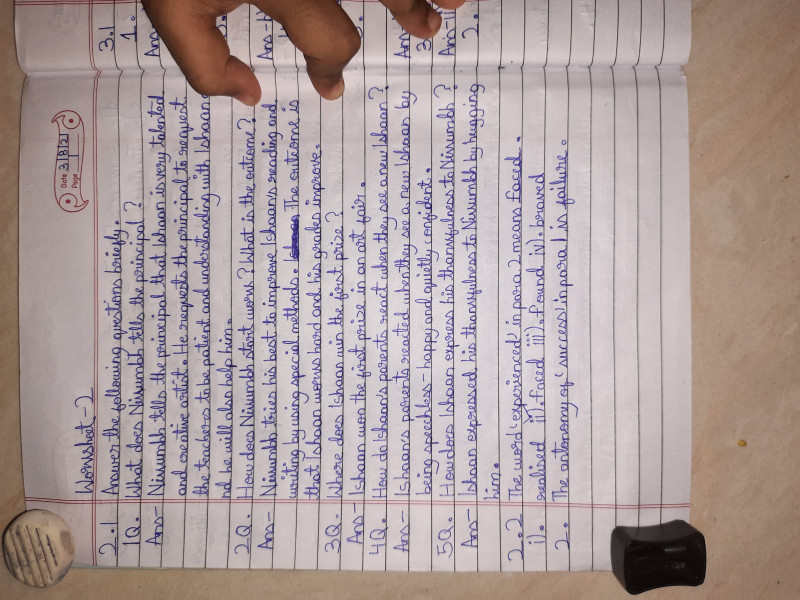 Date 3/8/21
Page
Worksheet-2
2.1 Answer the following questions briefly.
1Q. What does Nikumbh tells the principal?
Ans- Nikumbh tells the principal that Ishaan is very talented
and creative artist. He requests the principal to request
the teachers to be patient and understanding with Ishaan
nd he will also help him.
2Q. How does Nikumbh start work? What is the outcome?
Ans- Nikumbh tries his best to improve Ishaan's reading and
writing by using special methods. The outcome is
that Ishaan works hard and his grades improve.
3Q. Where does Ishaan win the first prize?
Ans- Ishaan won the first prize in an art fair.
4Q. How do Ishaan's parents react when they see a new Ishaan?
Ans- Ishaan's parents reacted when they see a new Ishaan by
being speechless - happy and quietly confident.
5Q. How does Ishaan express his thankfulness to Nikumbh?
Ans- Ishaan expressed his thankfulness to Nikumbh by hugging
him.
2.2 The word 'experienced' in para 2 means faced.
i). realised ii). faced iii). found iv). braved
2. The autonomy of 'success' in para 1 is failure.
3.1
1.
Ans
Ans-
3
Ans-
2.